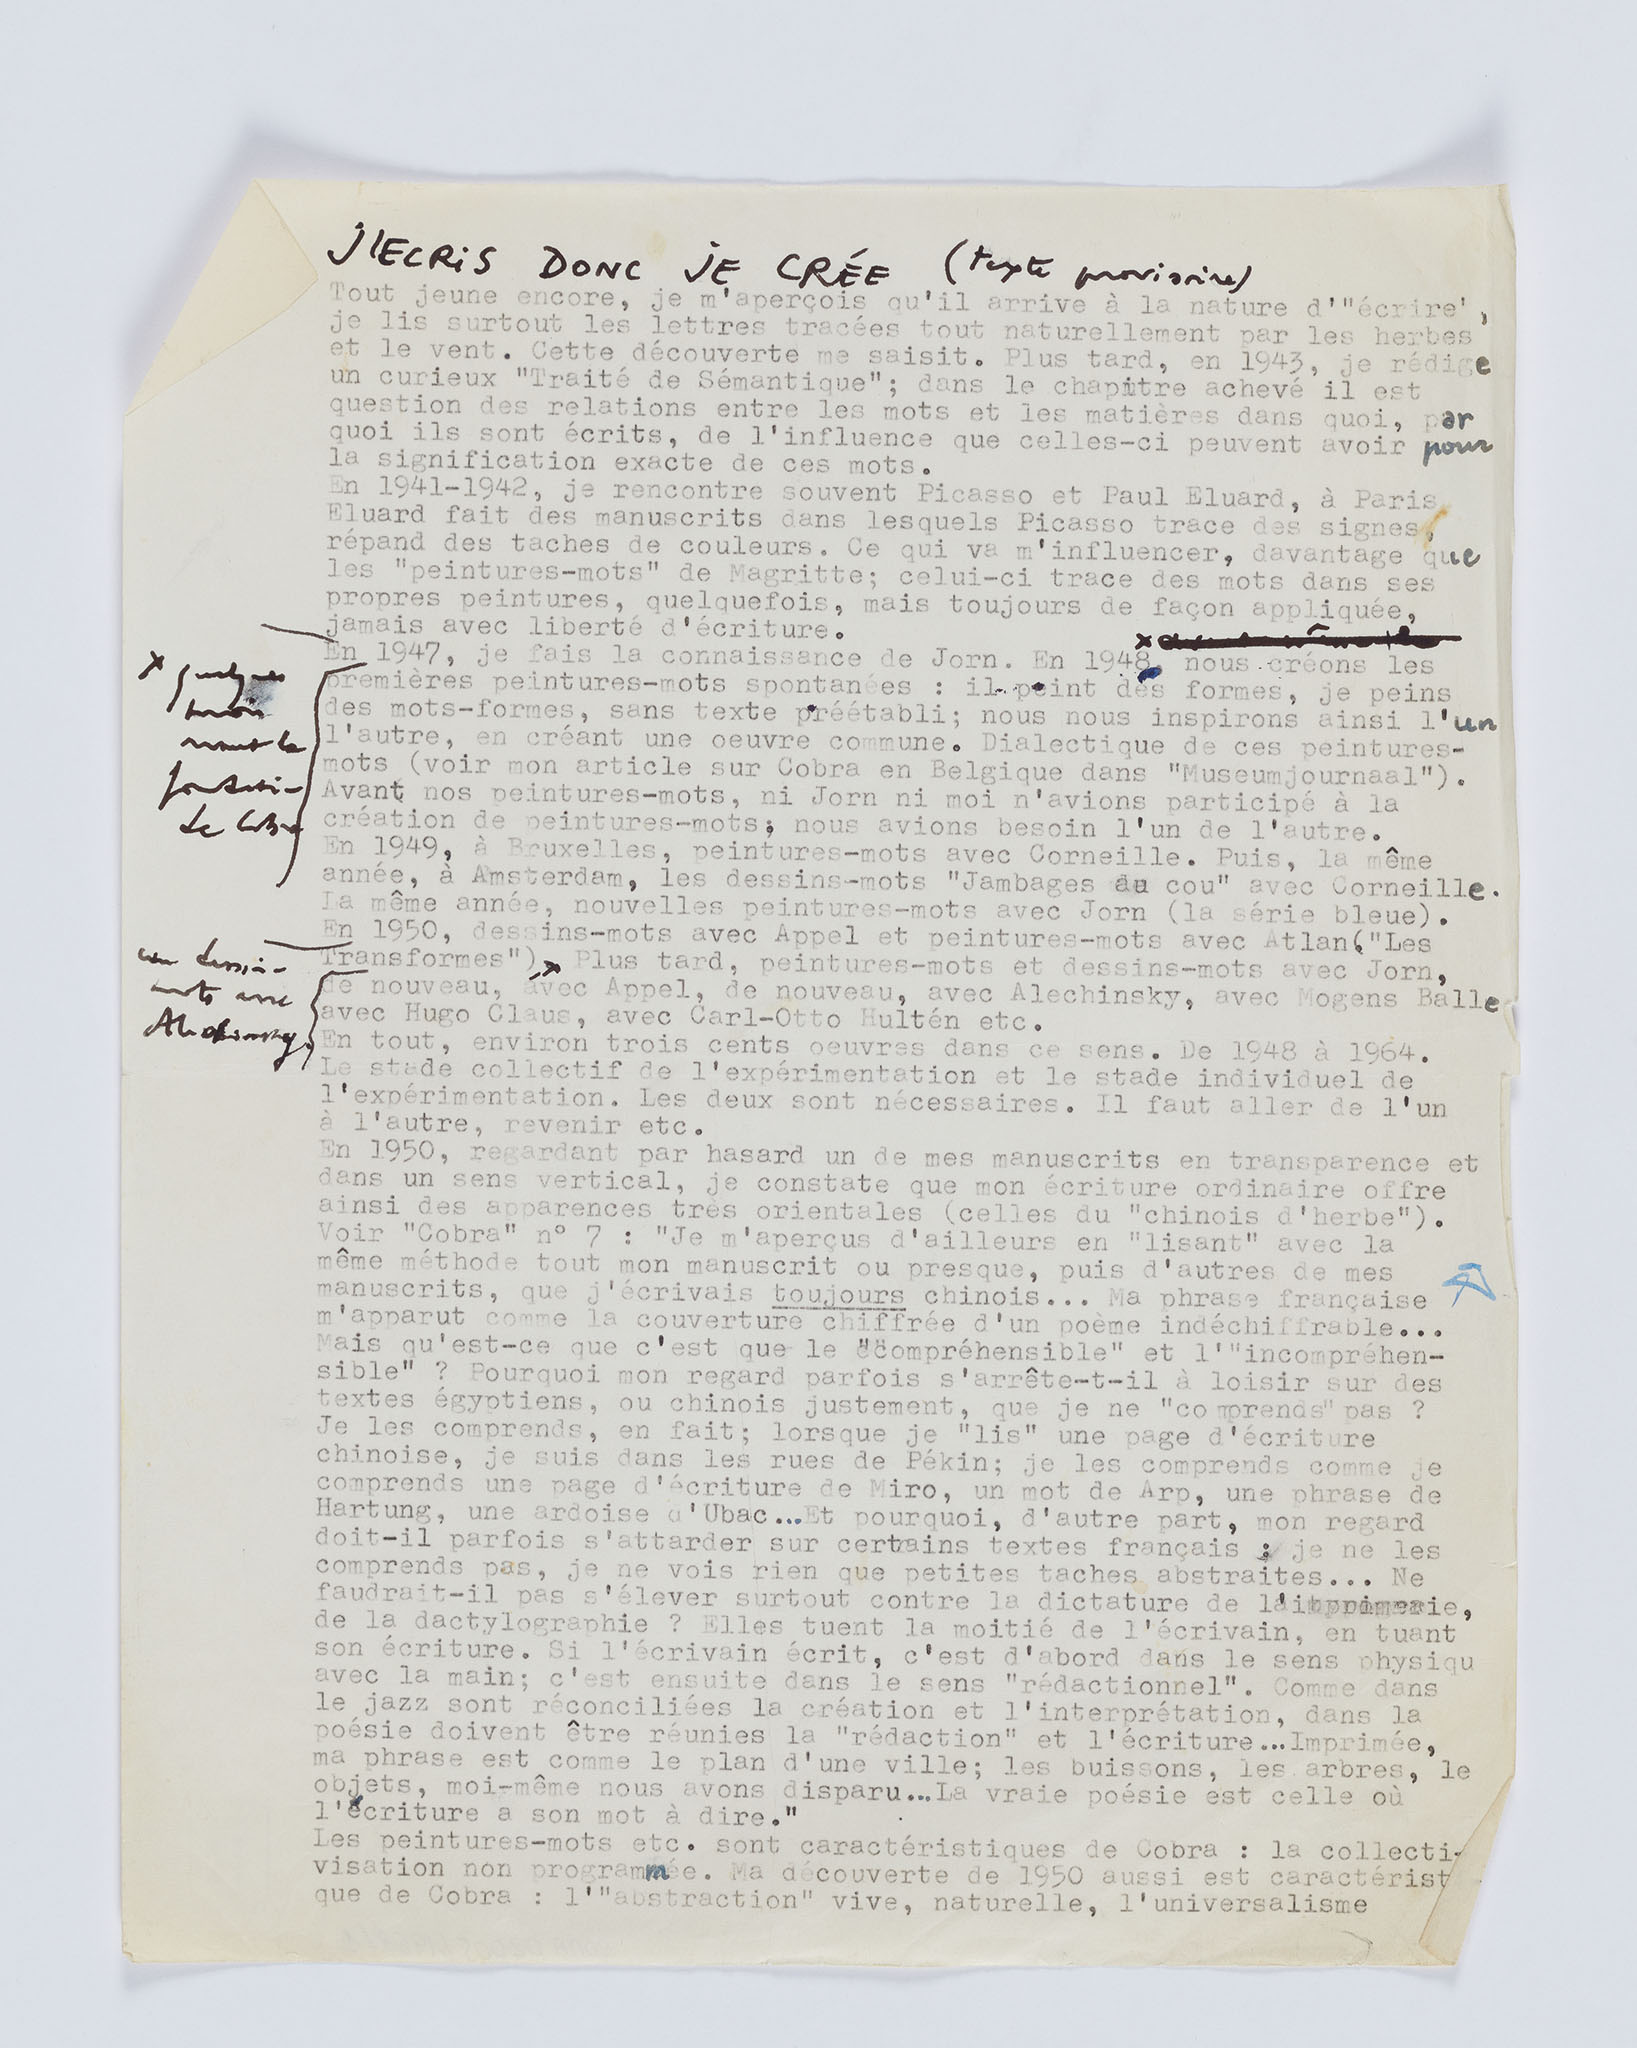 J'ECRIS DONC JE CRÉE (texte provisoire)
Tout jeune encore, je m'aperçois qu'il arrive à la nature d'"écrire',
je lis surtout les lettres tracées tout naturellement par les herbes
et le vent. Cette découverte me saisit. Plus tard, en 1943, je rédige
un curieux "Traité de Sémantique"; dans le chapitre achevé il est
question des relations entre les mots et les matières dans quoi, par
quoi ils sont écrits, de l'influence que celles-ci peuvent avoir pour
la signification exacte de ces mots.
En 1941-1942, je rencontre souvent Picasso et Paul Eluard, à Paris
Eluard fait des manuscrits dans lesquels Picasso trace des signes,
répand des taches de couleurs. Ce qui va m'influencer, davantage que
les "peintures-mots" de Magritte; celui-ci trace des mots dans ses
propres peintures, quelquefois, mais toujours de façon appliquée,
jamais avec liberté d'écriture.
En 1947, je fais la connaissance de Jorn. En 1948, x nous créons les
x quelques
mois
avant la
fondation
de Cobra
premières peintures-mots spontanées : il peint des formes, je peins
des mots-formes, sans texte préétabli; nous nous inspirons ainsi l'un
l'autre, en créant une oeuvre commune. Dialectique de ces peintures-
mots (voir mon article sur Cobra en Belgique dans "Museumjournaal").
Avant nos peintures-mots, ni Jorn ni moi n'avions participé à la
création de peintures-mots; nous avions besoin l'un de l'autre.
En 1949, à Bruxelles, peintures-mots avec Corneille. Puis, la même
année, à Amsterdam, les dessins-mots "Jambages au cou" avec Corneille.
La même année, nouvelles peintures-mots avec Jorn (la série bleue).
En 1950, dessins-mots avec Appel et peintures-mots avec Atlan ("Les
Transformes"), x Plus tard, peintures-mots et dessins-mots avec Jorn,
dessin-
mots avec
Alechinsky.
de nouveau, avec Appel, de nouveau, avec Alechinsky, avec Mogens Balle
avec Hugo Claus, avec Carl-Otto Hultén etc.
En tout, environ trois cents oeuvres dans ce sens. De 1948 à 1964.
Le stade collectif de l'expérimentation et le stade individuel de
l'expérimentation. Les deux sont nécessaires. Il faut aller de l'un
à l'autre, revenir etc.
En 1950, regardant par hasard un de mes manuscrits en transparence et
dans un sens vertical, je constate que mon écriture ordinaire offre
ainsi des apparences très orientales (celles du "chinois d'herbe").
Voir "Cobra" n° 7 : "Je m'aperçus d'ailleurs en "lisant" avec la
même méthode tout mon manuscrit ou presque, puis d'autres de mes
manuscrits, que j'écrivais toujours chinois... Ma phrase française
m'apparut comme la couverture chiffrée d'un poème indéchiffrable...
Mais qu'est-ce que c'est que le "compréhensible" et l'"incompréhen-
sible" ? Pourquoi mon regard parfois s'arrête-t-il à loisir sur des
textes égyptiens, ou chinois justement, que je ne "comprends" pas ?
Je les comprends, en fait; lorsque je "lis" une page d'écriture
chinoise, je suis dans les rues de Pékin; je les comprends comme je
comprends une page d'écriture de Miro, un mot de Arp, une phrase de
Hartung, une ardoise d'Ubac...Et pourquoi, d'autre part, mon regard
doit-il parfois s'attarder sur certains textes français : je ne les
comprends pas, je ne vois rien que petites taches abstraites... Ne
faudrait-il pas s'élever surtout contre la dictature de l'imprimerie,
de la dactylographie ? Elles tuent la moitié de l'écrivain, en tuant
son écriture. Si l'écrivain écrit, c'est d'abord dans le sens physiqu
avec la main; c'est ensuite dans le sens "rédactionnel". Comme dans
le jazz sont réconciliées la création et l'interprétation, dans la
poésie doivent être réunies la "rédaction" et l'écriture...Imprimée,
ma phrase est comme le plan d'une ville; les buissons, les arbres, le
objets, moi-même nous avons disparu...La vraie poésie est celle où
l'écriture a son mot à dire."
Les peintures-mots etc. sont caractéristiques de Cobra : la collecti-
visation non programmée. Ma découverte de 1950 aussi est caractérist
que de Cobra : l'"abstraction" vive, naturelle, l'universalisme